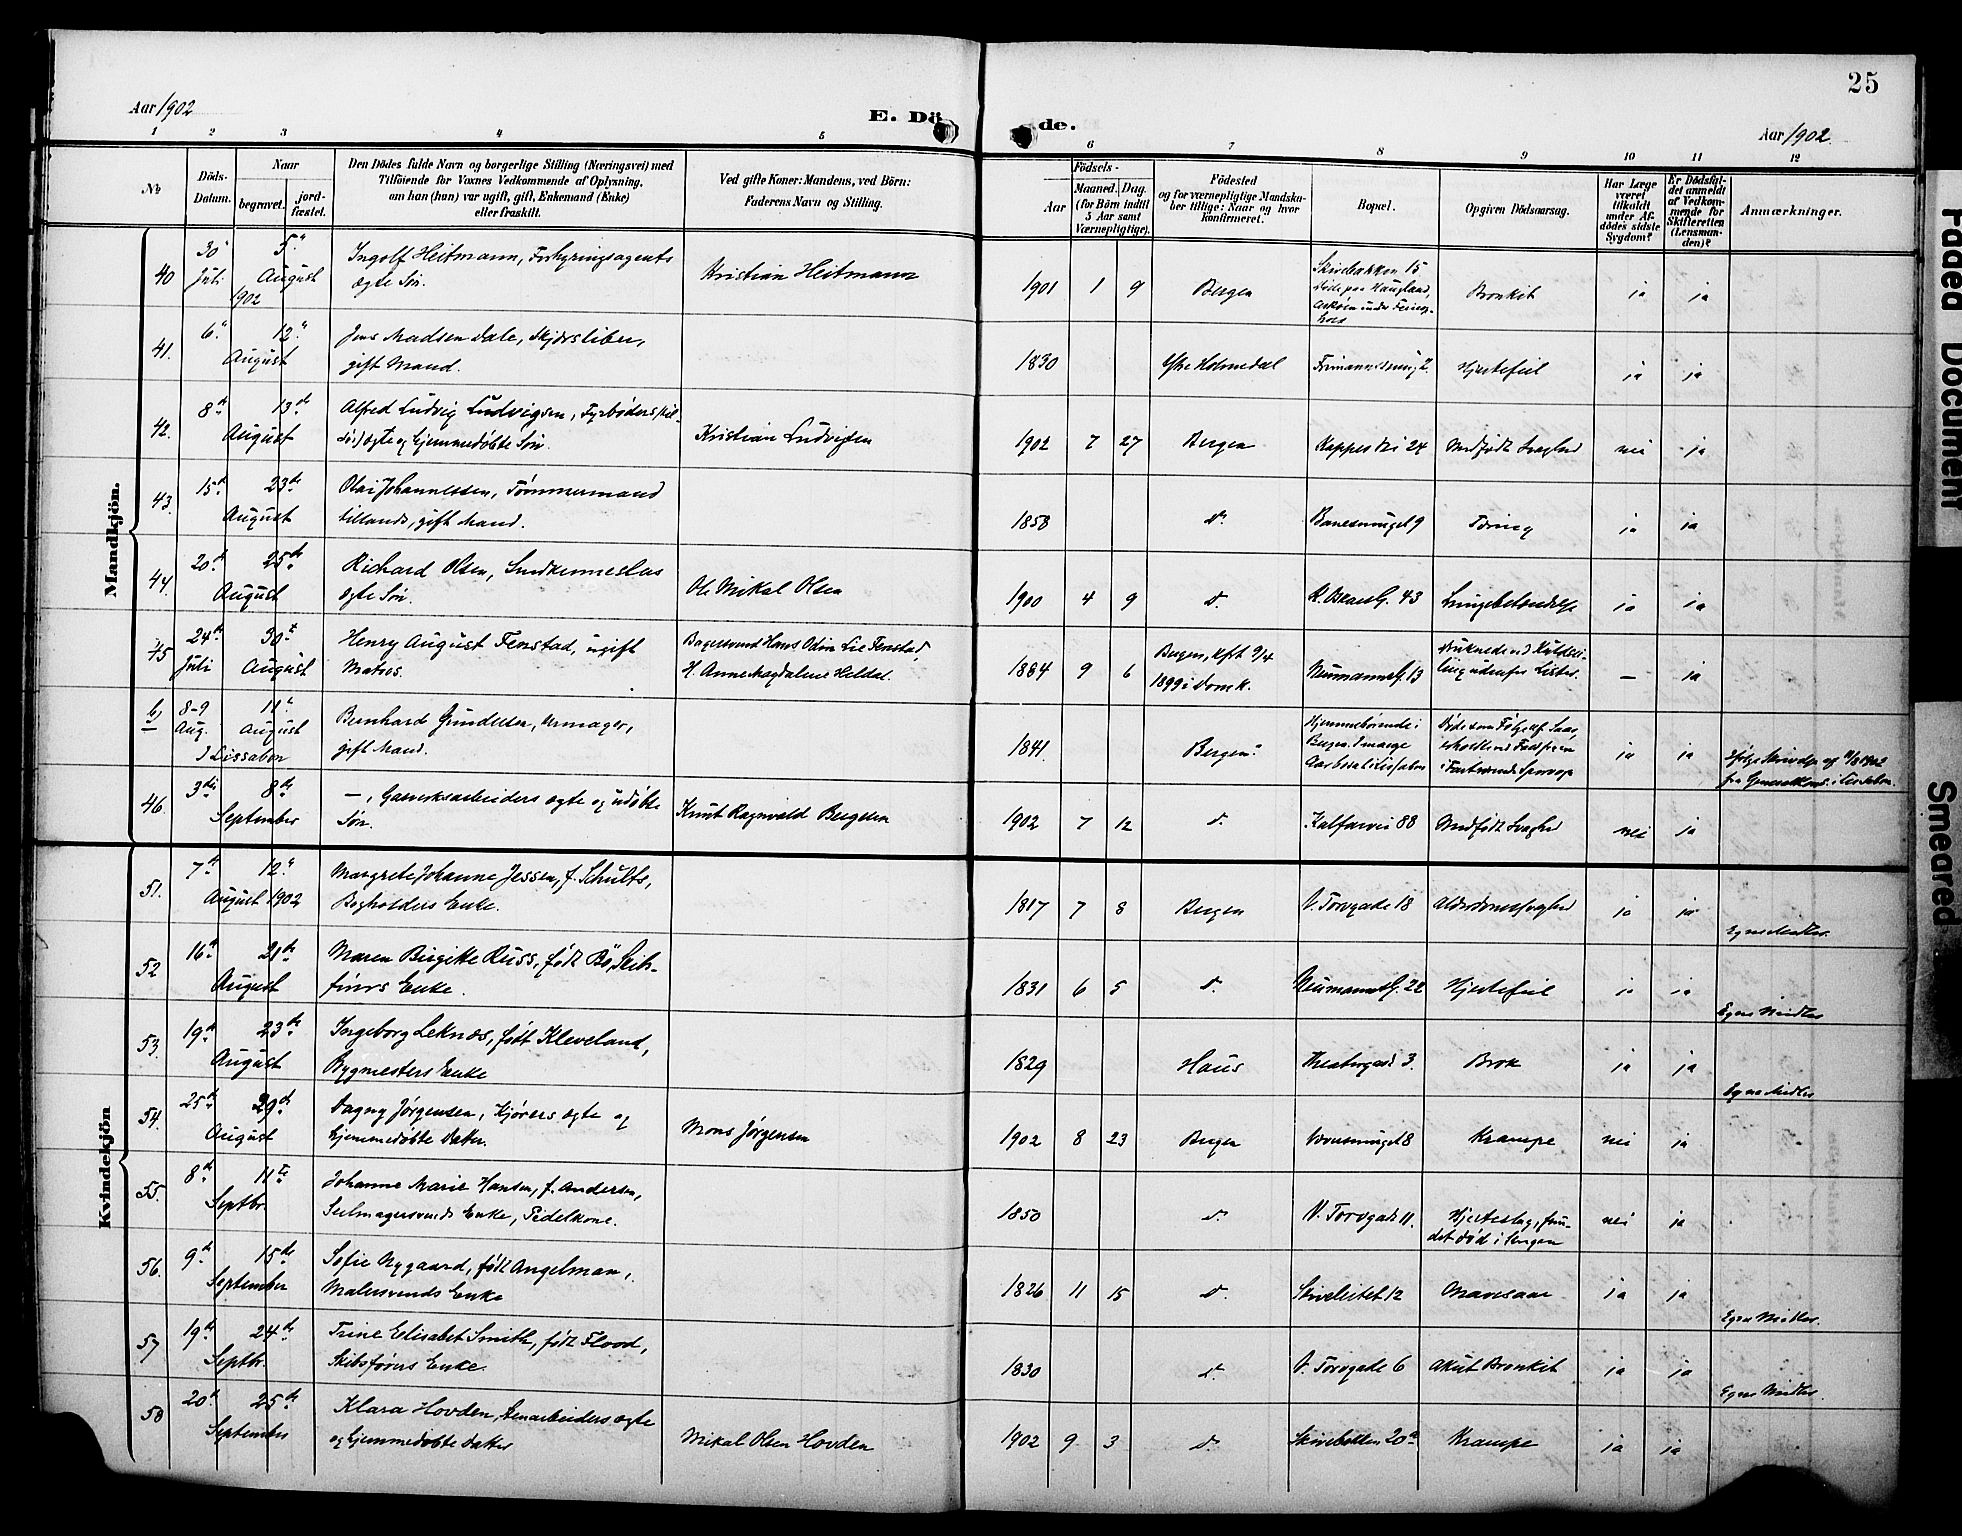 25
Aar 1902
E. Dö
de.
Aar 1902.
1 2 3 4 5 6 7 8 9 10 11 12
No
Döds-
Datum.
Naar
begravet.
jord-
fæstet.
Den Dödes fulde Navn og borgerlige Stilling (Næringsvei) med
Tilföiende for Voxnes Vedkommende af Oplysning,
om han (hun) var ugift, gift, Enkemand (Enke)
eller fraskilt.
Ved gifte Koner: Mandens, ved Börn:
Faderens Navn og Stilling.
Födsels-
Aar
Maaned. Dag.
(for Börn indtil
5 Aar samt
Værnepligtige).
Födested
og for værnepligtige Mandska-
ber tillige: Naar og hvor
konfirmeret.
Bopæl.
Opgiven Dödsaarsag.
Har Læge
været
tilkaldt
under Af-
dödes sidste
Sygdom?
Er Dödsfal-
det anmeldt
af Vedkom-
mende for
Skifteretten
(Lensman-
den)?
Anmærkninger.
Mandkjön.
40 30 Juli 5 August 902
Ingolf Heitmann, Forhyringsagents
ægte Søn.
Kristian Heitmann
1901 1 9 Bergen
Skivebakken 15
døde paa Haugland,
Bronkit ja ja
41. 6 12 August
Jens Madsen Dale, Skjærsliber,
gift Mand.
1830 Ytre Holmedal Hjertefeil ja ja
42. 8 13 August
Alfred Ludvig Ludvigsen, Fyrbøders
ægte og hjemmedøbte Søn.
Kristian Ludvigsen
1902 7 27 Bergen 24 Medfødt Svaghed nei ja
43. 15 23 August
Olai Johannessen, Tømmermand
tillands, gift Mand.
1858 d. 9 Tæring ja ja
44. 20 25 August
Richard Olsen,
ægte Søn.
Ole Mikal Olsen
1900 4 9 d. 43 Lungebetændelse ja ja
45 24 Juli 30 August
Henry August Fenstad, ugift
Matros.
Bagersvend Hans Odin Lie Fenstad,
H. Anne Magdalene Heldal.
1884 9 6 Bergen, kft 9/4
1899 i Domk.
Neumannsg. 13
— ja
b 8-9 Aug. 11 August
I Lissabon
Bernhard Gundersen, Urmager,
gift Mand.
1841. Bergen
Hjemmehørende i
Bergen.
ja ja
46. 3 8 September
—, Gasverksarbeiders ægte og udøbte
Søn.
Knut Ragnvald Bergesen
1902 7 12 d. Kalfarvei 88 Medfødt Svaghed nei ja
Kvindekjön
51. 7 12 August 1902
Margrete Johanne Jessen, f. Schults,
Bogholders Enke.
1817 7 8 Bergen V. Torvgade 18 Alderdomssvaghed ja ja
52 16 21 August
Maren Birgitte Russ, født Bö, Skibs-
førers Enke.
1831 6 5 d. Neumannsg. 22 Hjertefeil ja ja Egne Midler
53. 19 23 August
Ingeborg Leknæs, født Kleveland,
Bygmesters Enke
1829 Haus Theatergade 3. Brok ja ja Egne Midler
54. 25 29 August
Dagny Jørgensen, Kjørers ægte og
hjemmedøbte Datter.
Mons Jørgensen
1902 8 23 Bergen Krampe nei ja
55. 8 11 Septbr.
Johanne Marie Hansen, f. Andersen,
Seilmagersvends Enke, Pedelkone.
1850 d. V. Torvgade 11. Hjerteslag, fun-
det død i Sengen
nei ja
56. 9 15 September
Sofie Nygaard, født Angelman,
Malersvends Enke
1826 11 15 d. Skivebakken 12 Mavesaar ja ja Egne Midler.
57 19 24 Septbr.
Trine Elisabet Smith, født Flood,
Skibsførers Enke.
1830 d. V. Torvgade 6 Akut Bronkit ja ja Egne Midler.
58 20 25 September
Klara Hovden, Stenarbeiders ægte
og hjemmedøbte Datter
Mikal Olsen Hovden
1902 9 3 d. Skivebakken 20 Krampe ja ja
Faded Document
Smeared